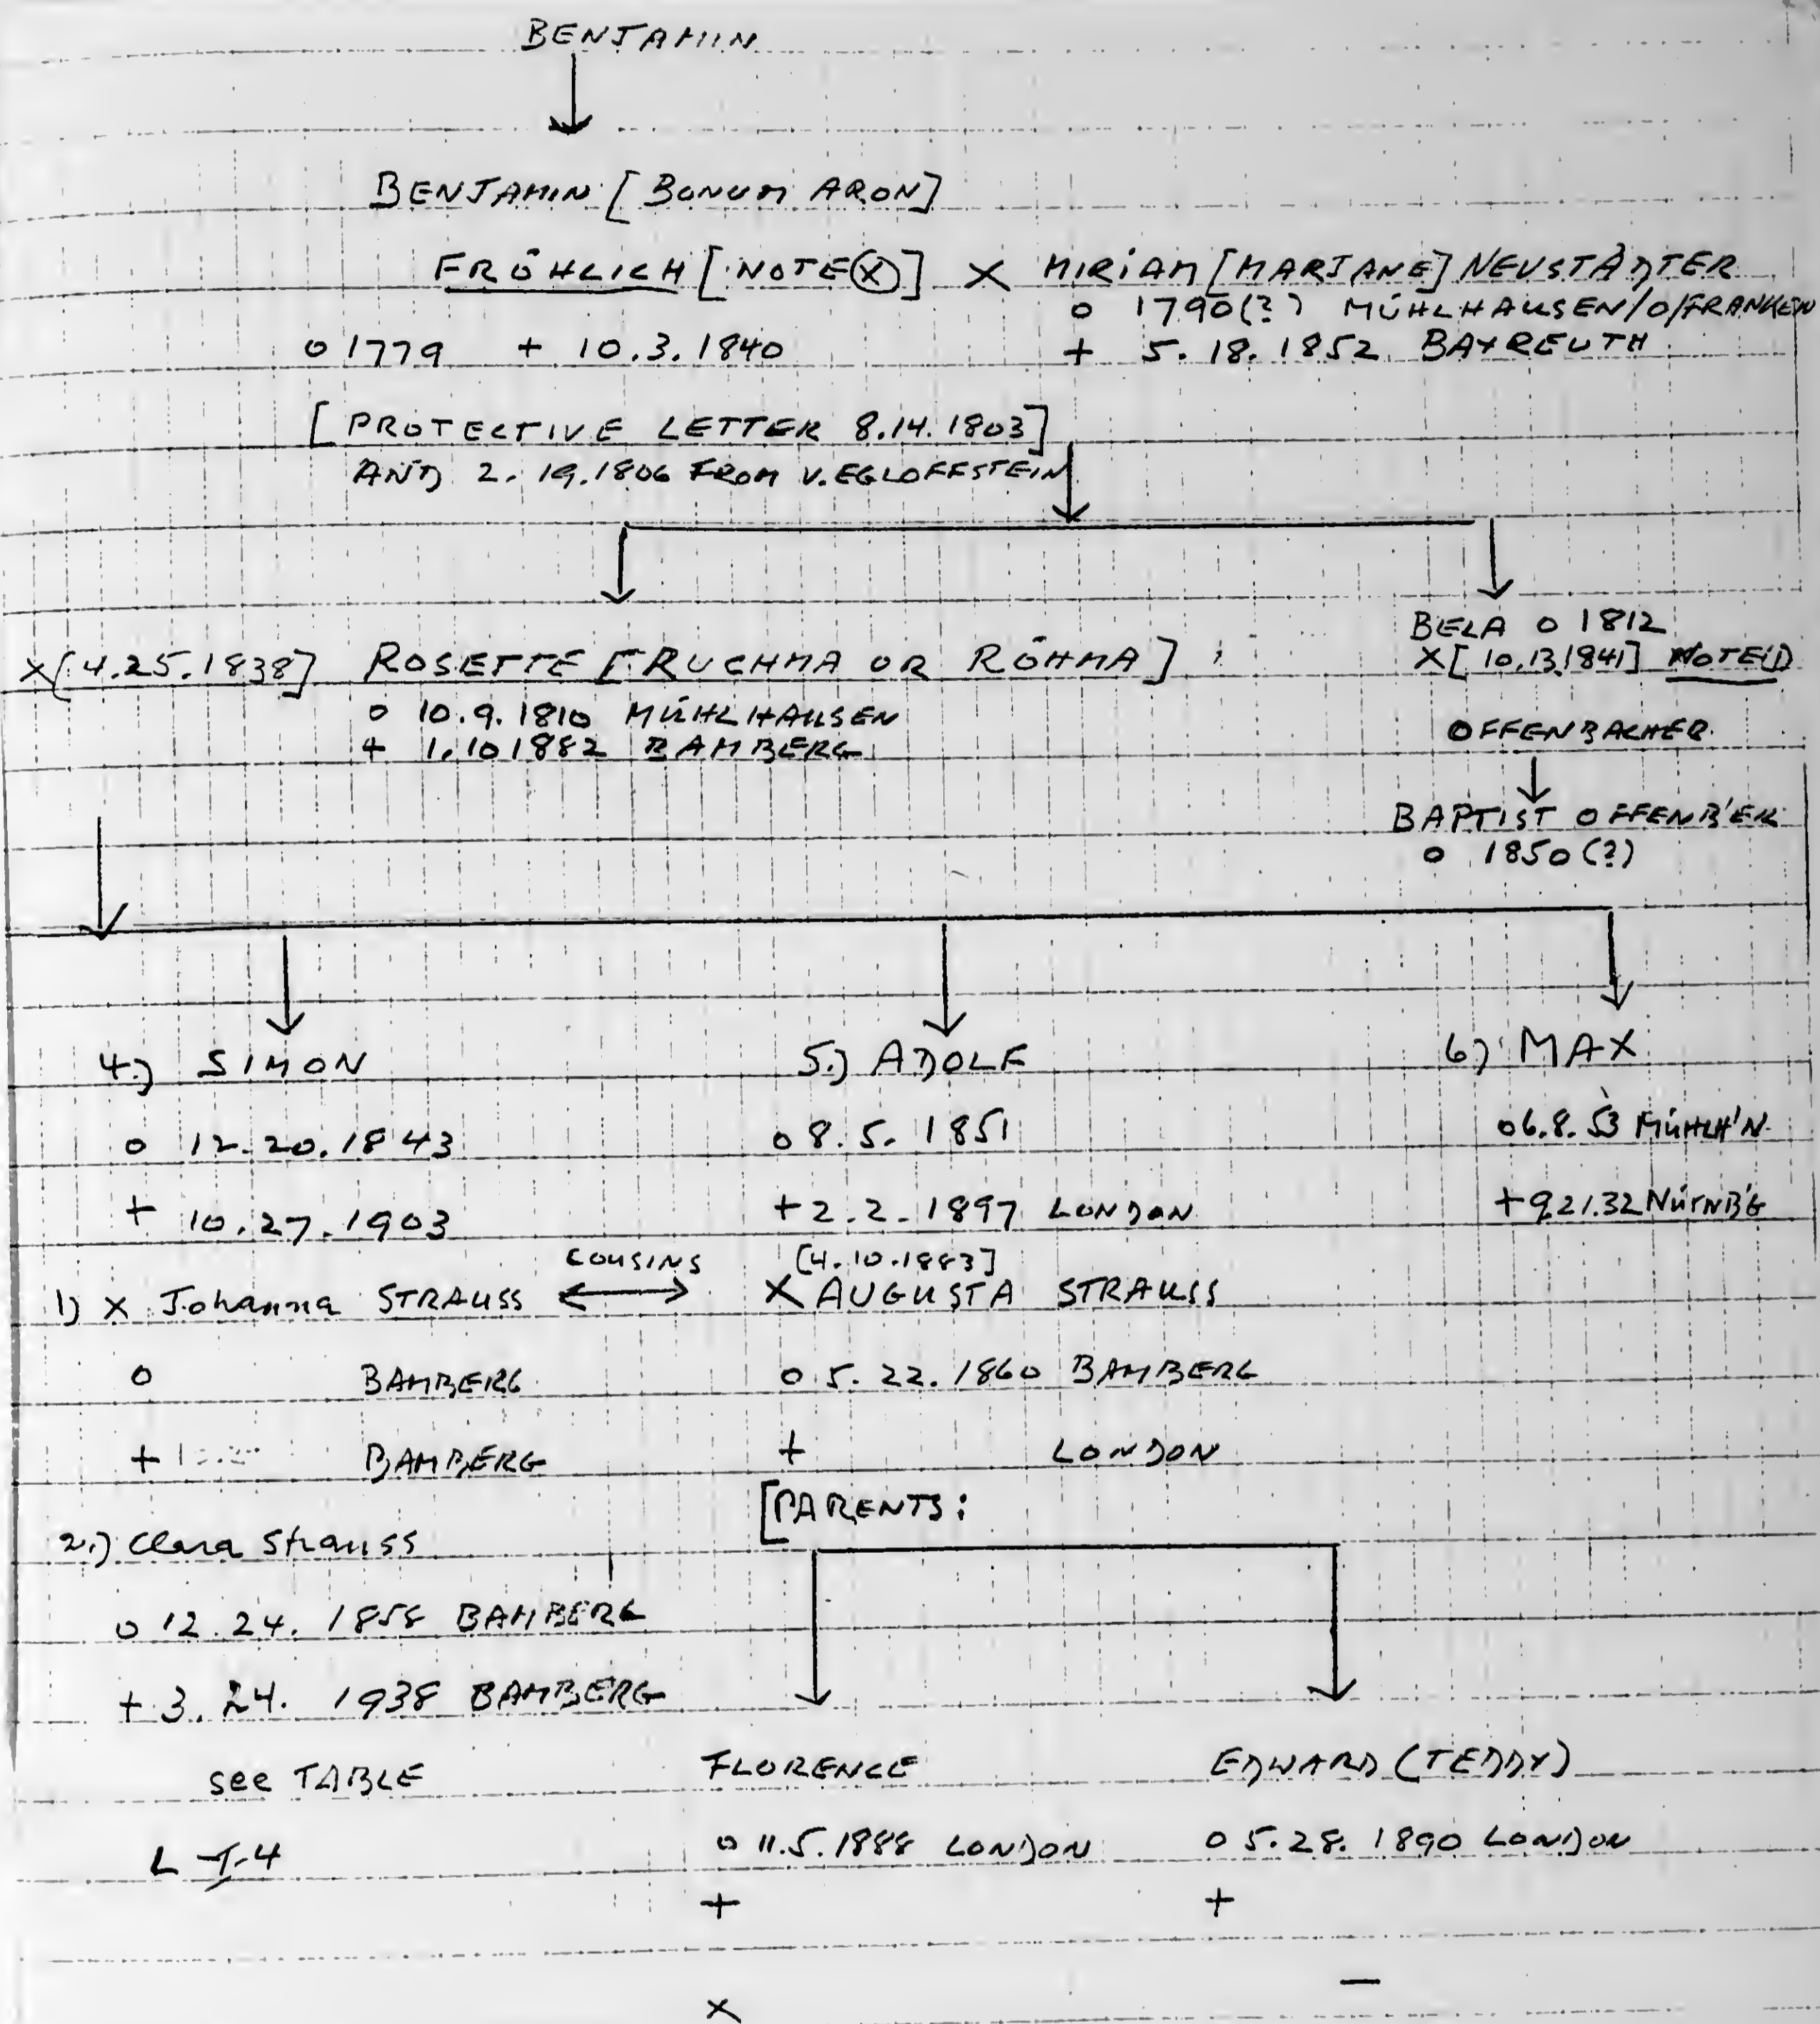 BENJAMIN
BENJAMIN [BONUM ARON]
FRÖHLICH [NOTE (X)] X MIRIAM [MARJANE] NEUSTÄDTER
o 1790(?) MÜHLHAUSEN/O/FRANKEN
o 1779 + 10.3.1840
+ 5.18.1852 BAYREUTH
[PROTECTIVE LETTER 8.14.1803]
AND 2.19.1806 FROM V. EGLOFFSTEIN
X [4.25.1838] ROSETTE [RUCHMA OR RÖHMA]
o 10.9.1810 MÜHLHAUSEN
+ 1.10 1882 BAMBERG
BELA o 1812
X [10.13.1841] NOTE(1)
OFFENBACHER
BAPTIST OFFENB'ER
o 1850(?)
4.) SIMON
o 12.20.1843
+ 10.27.1903
1) X Johanna STRAUSS
o BAMBERG
+ BAMBERG
2.) Clara Strauss
o 12.24.1858 BAMBERG
+ 3.24.1938 BAMBERG
see TABLE
L I-4
COUSINS
5.) ADOLF
o 8.5.1851
+ 2.2.1897 LONDON
[4.10.1883]
X AUGUSTA STRAUSS
o 5.22.1860 BAMBERG
+ LONDON
[PARENTS:
FLORENCE
o 11.5.1888 LONDON
+
X
EDWARD (TEDDY)
o 5.28.1890 LONDON
+
—
6) MAX
o 6.8.53 MÜHLH'N
+ 9.21.32 NÜRNB'G